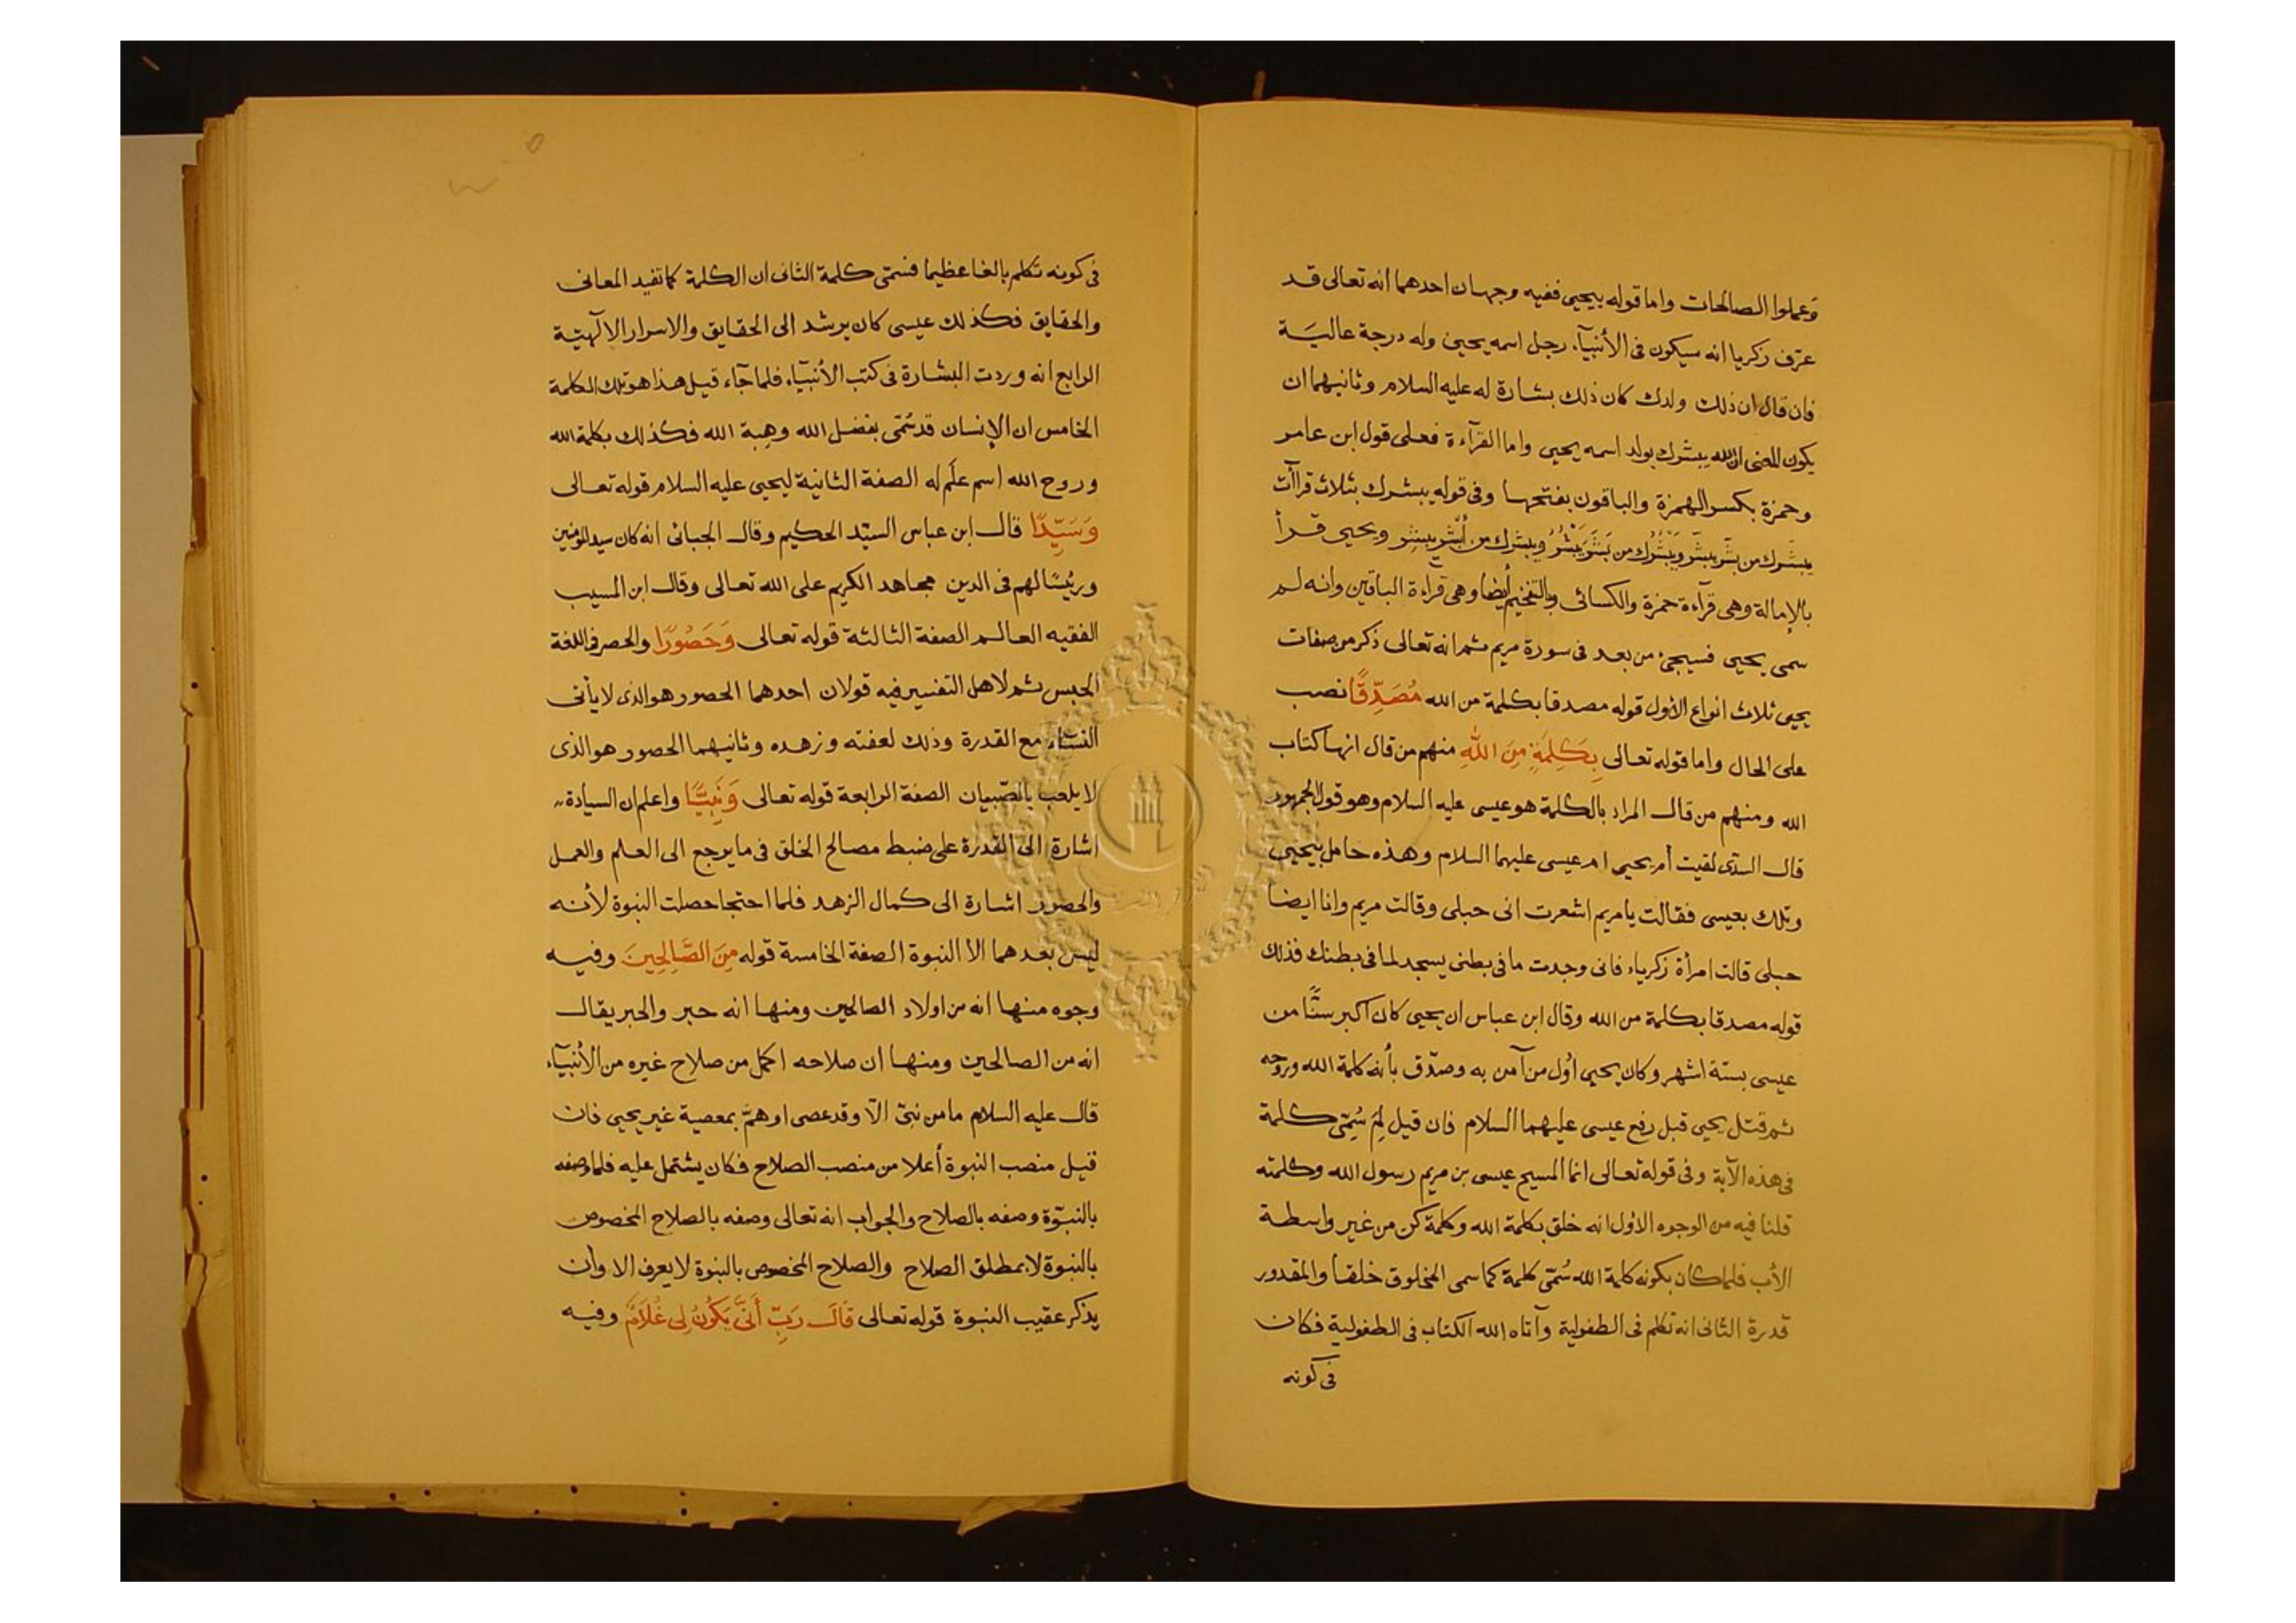 وعملوا الصالحات واما قوله بيحيى ففيه وجهان احدهما انه تعالى قد
عرّف زكريا انه سيكون فى الأنبيآء رجل اسمه يحيى وله درجة عاليَة
فان قال ان ذلك ولدك كان ذلك بشارة له عليه السلام وثانيهما ان
يكون المعنى ان الله يبشرك بولد اسمه يحيى واما القرآءة فعلى قول ابن عامر
وحمزة بكسر الهمزة والباقون بفتحها وفى قوله يبشرك بثلاث قراآت
يبشّرك من بشّر يبشّر ويَبْشُرك من بَشَر يَبْشُرُ ويبشرك من أبشر يبشِر ويحيى قرأ
بالإمالة وهى قرآءة حمزة والكسائى وبالتفخيم أيضا وهى قراءة الباقين وانه لم
سمى يحيى فسيجئ من بعد فى سورة مريم ثم انه تعالى ذكر من صفات
يحيى ثلاث انواع الأول قوله مصدقا بكلمة من الله مُصَدِّقًا نصب
على الحال واما قوله تعالى بِكَلِمَةٍ مِنَ اللهِ منهم من قال انها كتاب
الله ومنهم من قال المراد بالكلمة هو عيسى عليه السلام وهو قول الجمهور
قال السدّى لقيت أم يحيى ام عيسى عليهما السلام وهذه حامل بيحيى
وتلك بعيسى فقالت يا مريم اشعرت انى حبلى وقالت مريم وانا ايضا
حبلى قالت امرأة زكرياء فانى وجدت ما فى بطنى يسجد لما فى بطنك فذلك
قوله مصدقا بكلمة من الله وقال ابن عباس ان يحيى كان اكبر سنًّا من
عيسى بستة اشهر وكان يحيى أول من آمن به وصدّق بأنه كلمة الله وروحه
ثم قتل يحيى قبل رفع عيسى عليهما السلام فان قيل لِمَ سُمِّى كلمة
فى هذه الآية وفى قوله تعالى انما المسيح عيسى بن مريم رسول الله وكلمته
قلنا فيه من الوجوه الأول انه خلق بكلمة الله وكلمة كن من غير واسطة
الأب فلما كان بكونه كلمة الله سُمّى كلمة كما سمى المخلوق خلقا والمقدور
قدرة الثانى انه تكلم فى الطفولية وآتاه الله الكتاب فى الطفولية فكان
فى كونه
فى كونه تكلم بالغا عظيما فسمى كلمة الثانى ان الكلمة كما تفيد المعانى
والحقايق فكذلك عيسى كان يرشد الى الحقايق والاسرار الالٓهيّة
الرابع انه وردت البشارة فى كتب الأنبيآء فلما جآء قيل هذا هو تلك الكلمة
الخامس ان الإنسان قد سُمّى بفضل الله وهِبة الله فكذلك بكلمة الله
وروح الله اسم علَم له الصفة الثانية ليحيى عليه السلام قوله تعالى
وَسَيِّدًا قال ابن عباس السيّد الحكيم وقال الجبائى انه كان سيد المؤمنين
ورئيسًا لهم فى الدين مجاهد الكريم على الله تعالى وقال ابن المسيب
الفقيه العالم الصفة الثالثة قوله تعالى وَحَصُورًا والحصر فى اللغة
الحبس ثم لاهل التفسير فيه قولان احدهما الحصور هو الذى لا يأتى
النسآء مع القدرة وذلك لعفته وزهده وثانيهما الحصور هو الذى
لا يلعب بالصّبيان الصفة الرابعة قوله تعالى وَنَبِيًّا واعلم ان السيادة
اشارة الى القدرة على ضبط مصالح الخلق فى ما يرجع الى العلم والعمل
والحصور اشارة الى كمال الزهد فلما احتجا حصلت النبوة لأنه
ليس بعدهما الا النبوة الصفة الخامسة قوله مِنَ الصَّالِحِينَ وفيه
وجوه منها انه من اولاد الصالحين ومنها انه حبر والحبر يقال
انه من الصالحين ومنها ان صلاحه اكمل من صلاح غيره من الأنبيآء
قال عليه السلام ما من نبىّ الّا وقد عصى او همّ بمعصية غير يحيى فان
قيل منصب النبوة أعلا من منصب الصلاح فكان يشتمل عليه فلما وصفه
بالنبوّة وصفه بالصلاح والجواب انه تعالى وصفه بالصلاح المخصوص
بالنبوة لا بمطلق الصلاح والصلاح المخصوص بالنبوة لا يعرف الا وأن
يذكر عقيب النبوة قوله تعالى قَالَ رَبِّ أَنَّىٰ يَكُونُ لِى غُلَامٌ وفيه